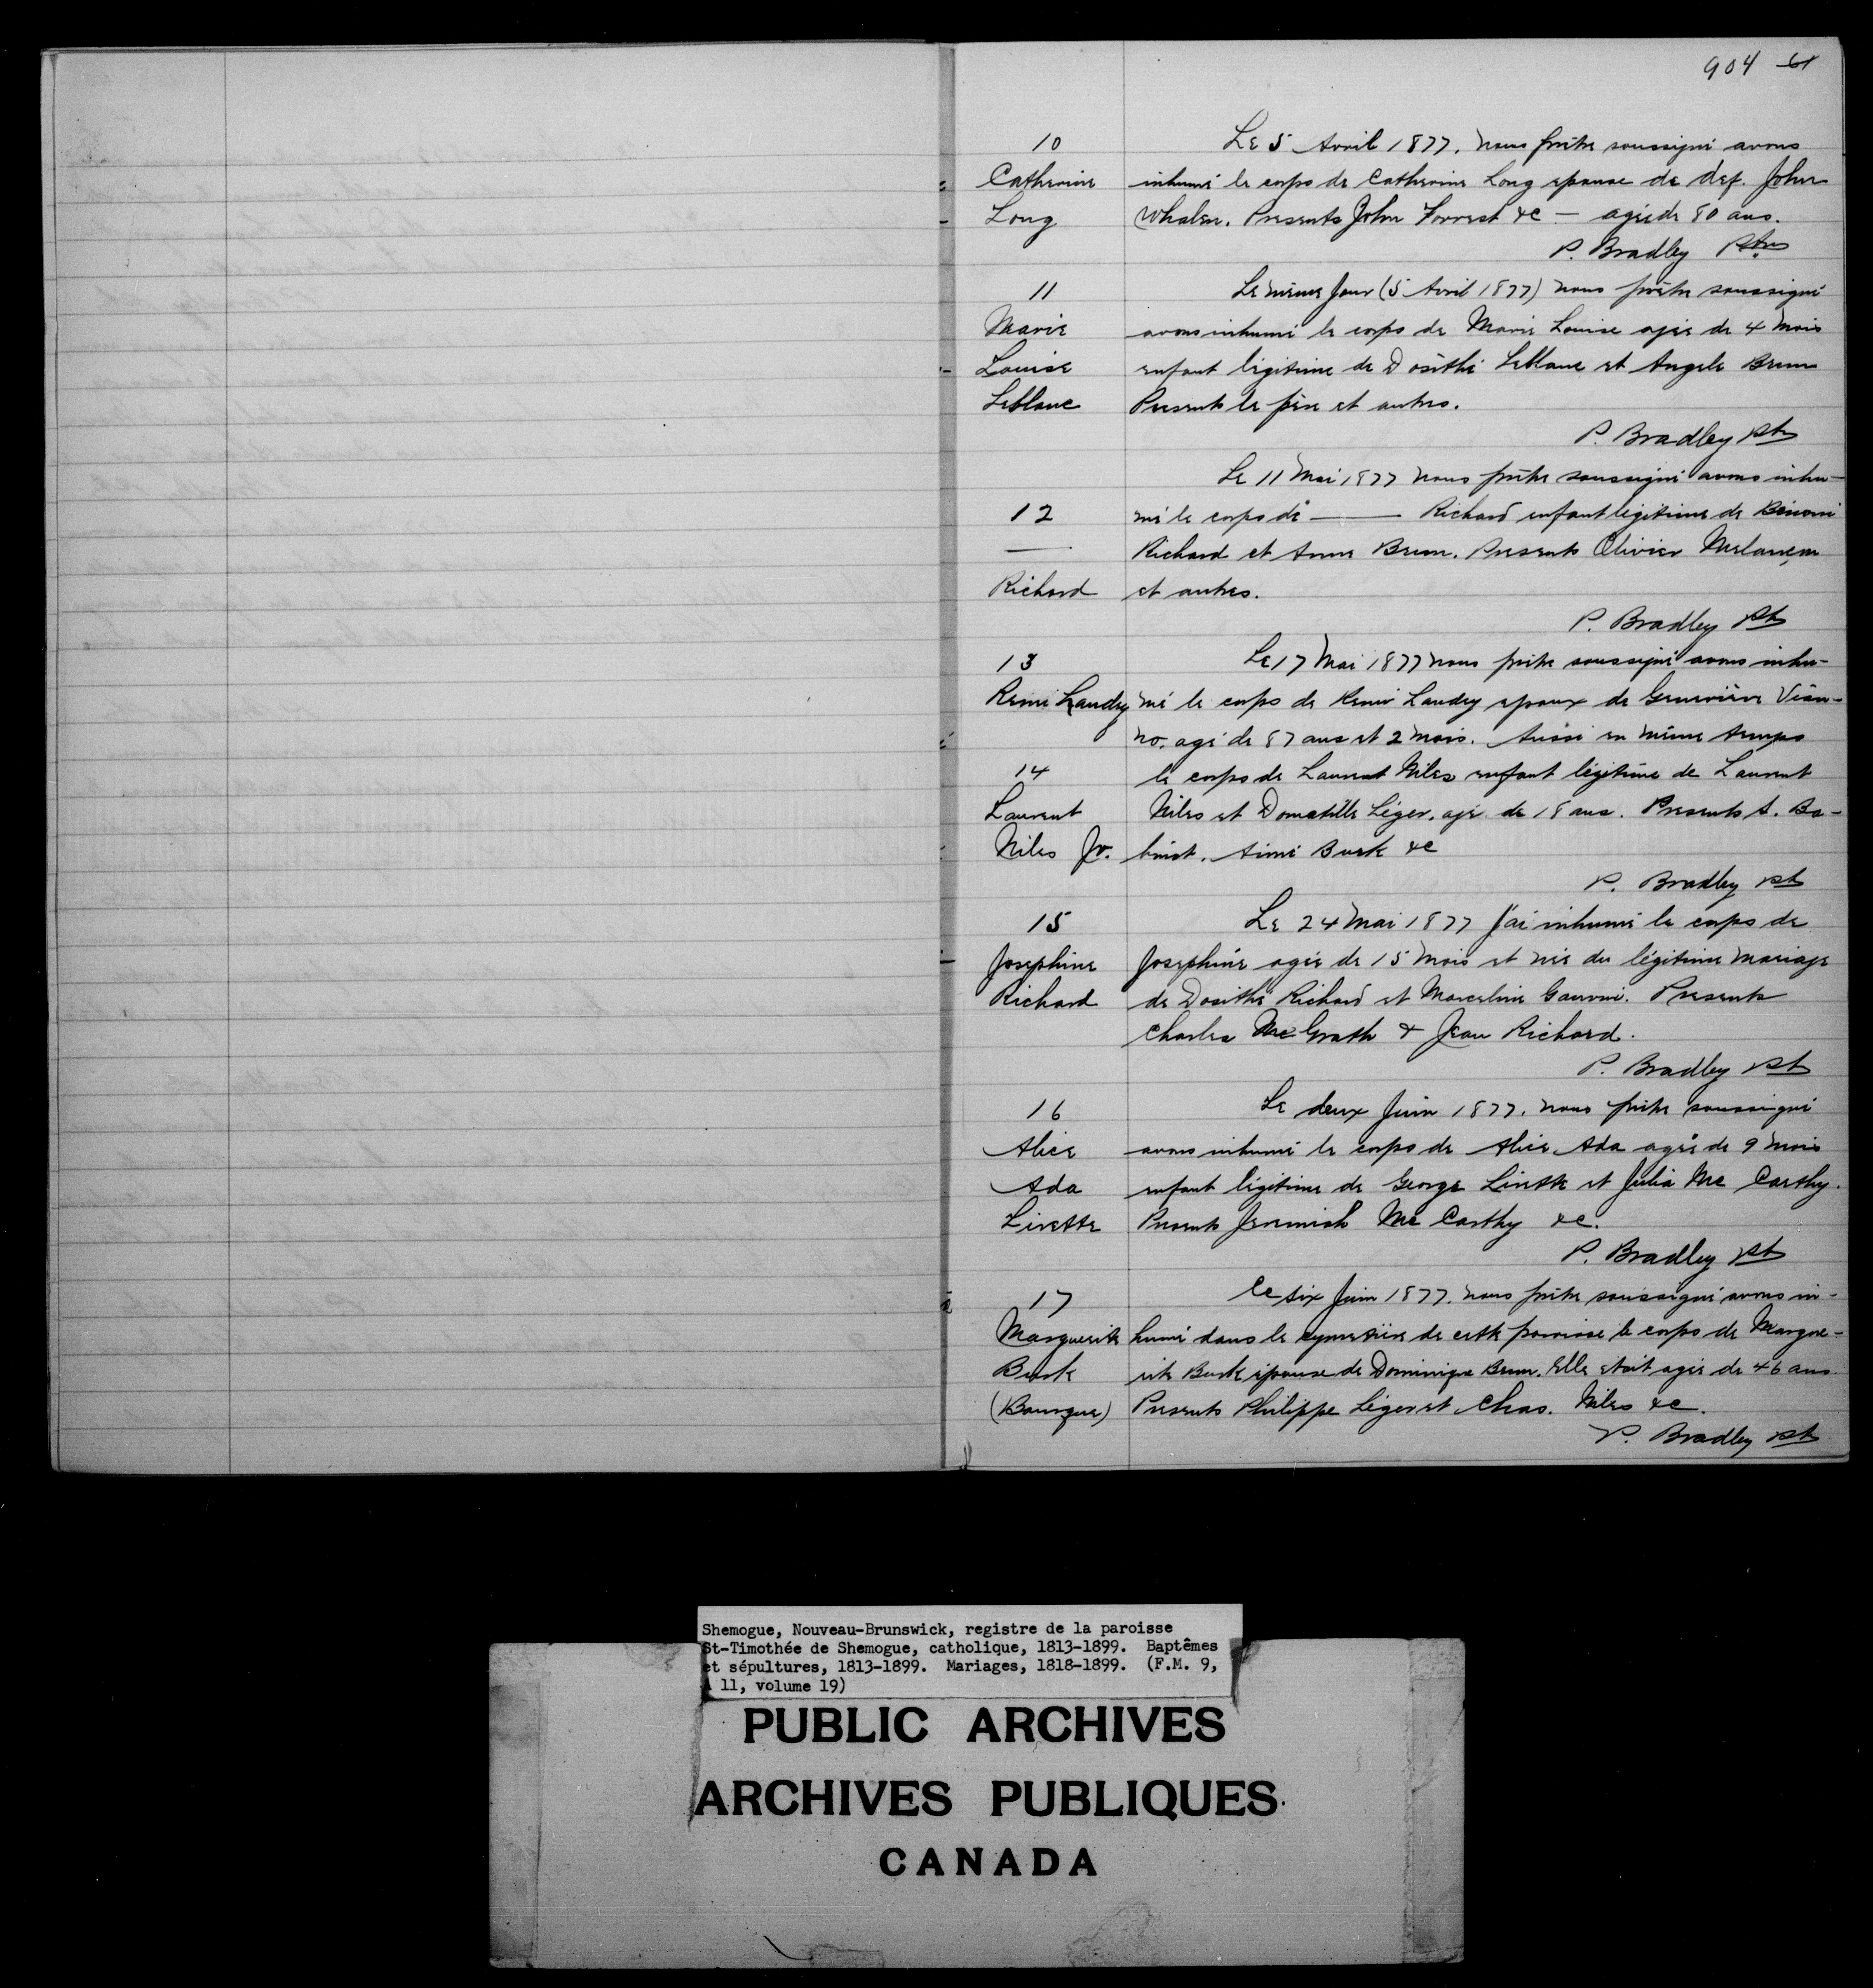 904 61
10
Le 5 Avril 1877. Nous prêtre soussigné avons
Catherine inhumé le corps de Catherine Long epouse de def. John
Long Whalen. Presents John Forrest &c — agée de 80 ans.
P. Bradley Ptre
11 Le même Jour (5 Avril 1877) nous prêtre soussigné
Marie avons inhumé le corps de Marie Louise agée de 4 mois
Louise enfant légitime de Dosithé Leblanc et Angele Brun
Leblanc Presents le père et autres.
P. Bradley Pt
Le 11 Mai 1877 nous prêtre soussigné avons inhu-
12 mé le corps de —— Richard enfant legitime de Bénoni
— Richard et Anne Brun. Presents Olivier Melançon
Richard et autres.
P. Bradley Pt
13 Le 17 Mai 1877 nous prêtre soussigné avons inhu-
Remi Landry mé le corps de Remi Landry epoux de Geneviève Vian-
no. agé de 87 ans et 2 mois. Aussi en même temps
14 le corps de Laurent Niles enfant légitime de Laurent
Laurent Niles et Domatille Léger. agé de 18 ans. Presents A. Ba-
Niles Jr. binst. Aimé Burk &c
P. Bradley Pt
15 Le 24 Mai 1877 J'ai inhumé le corps de
Josephine Josephine agée de 15 mois et née du légitime mariage
Richard de Dosithé Richard et Marceline Gauvin. Presents
Charles McGrath & Jean Richard.
P. Bradley Pt
16 Le deux Juin 1877. nous prêtre soussigné
Alice avons inhumé le corps de Alice Ada agée de 9 mois
Ada enfant légitime de George Lirette et Julia Mc Carthy.
Lirette Presents Jeremiah Mc Carthy &c.
P. Bradley Pt
17 Le six Juin 1877. nous prêtre soussigné avons in-
Marguerite humé dans le cymetière de cette paroisse le corps de Margue-
Burk rite Burk épouse de Dominique Brun. Elle etait agée de 46 ans.
(Bourque) Presents Philippe Léger et Chas. Niles &c.
P. Bradley Pt
Shemogue, Nouveau-Brunswick, registre de la paroisse
St-Timothée de Shemogue, catholique, 1813-1899. Baptêmes
et sépultures, 1813-1899. Mariages, 1818-1899. (F.M. 9,
11, volume 19)
PUBLIC ARCHIVES
ARCHIVES PUBLIQUES
CANADA